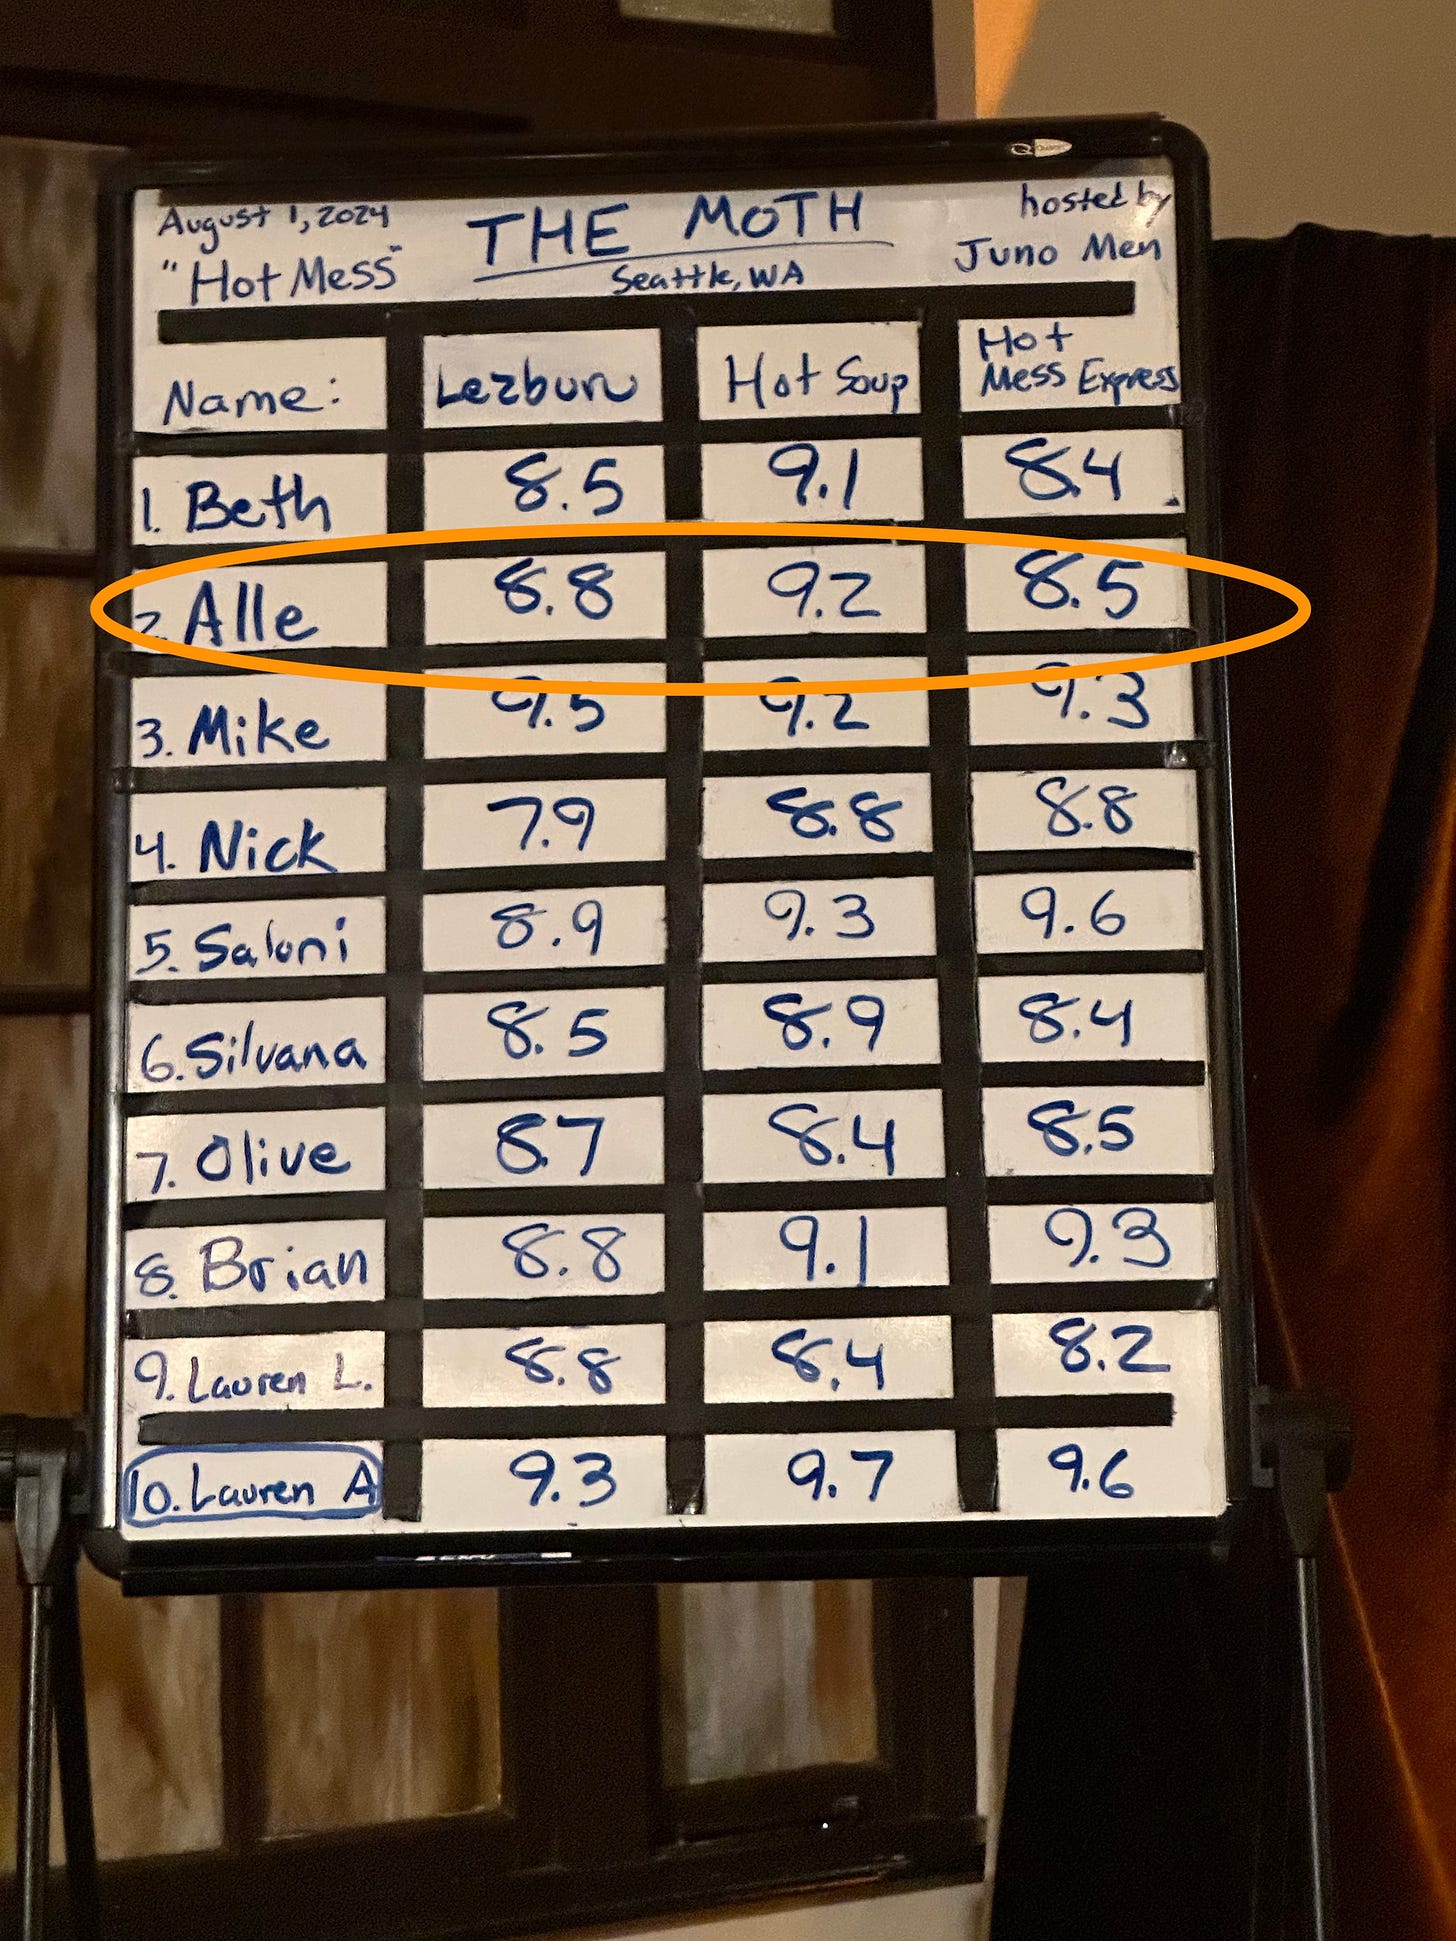 August 1, 2024 THE MOTH hosted by
"Hot Mess" Seattle, WA Juno Men
Name: Lezburu Hot Soup Hot Mess Express
1. Beth 8.5 9.1 8.4
2. Alle 8.8 9.2 8.5
3. Mike 9.5 9.2 9.3
4. Nick 7.9 8.8 8.8
5. Saloni 8.9 9.3 9.6
6. Silvana 8.5 8.9 8.4
7. Olive 8.7 8.4 8.5
8. Brian 8.8 9.1 9.3
9. Lauren L. 8.8 8.4 8.2
10. Lauren A 9.3 9.7 9.6